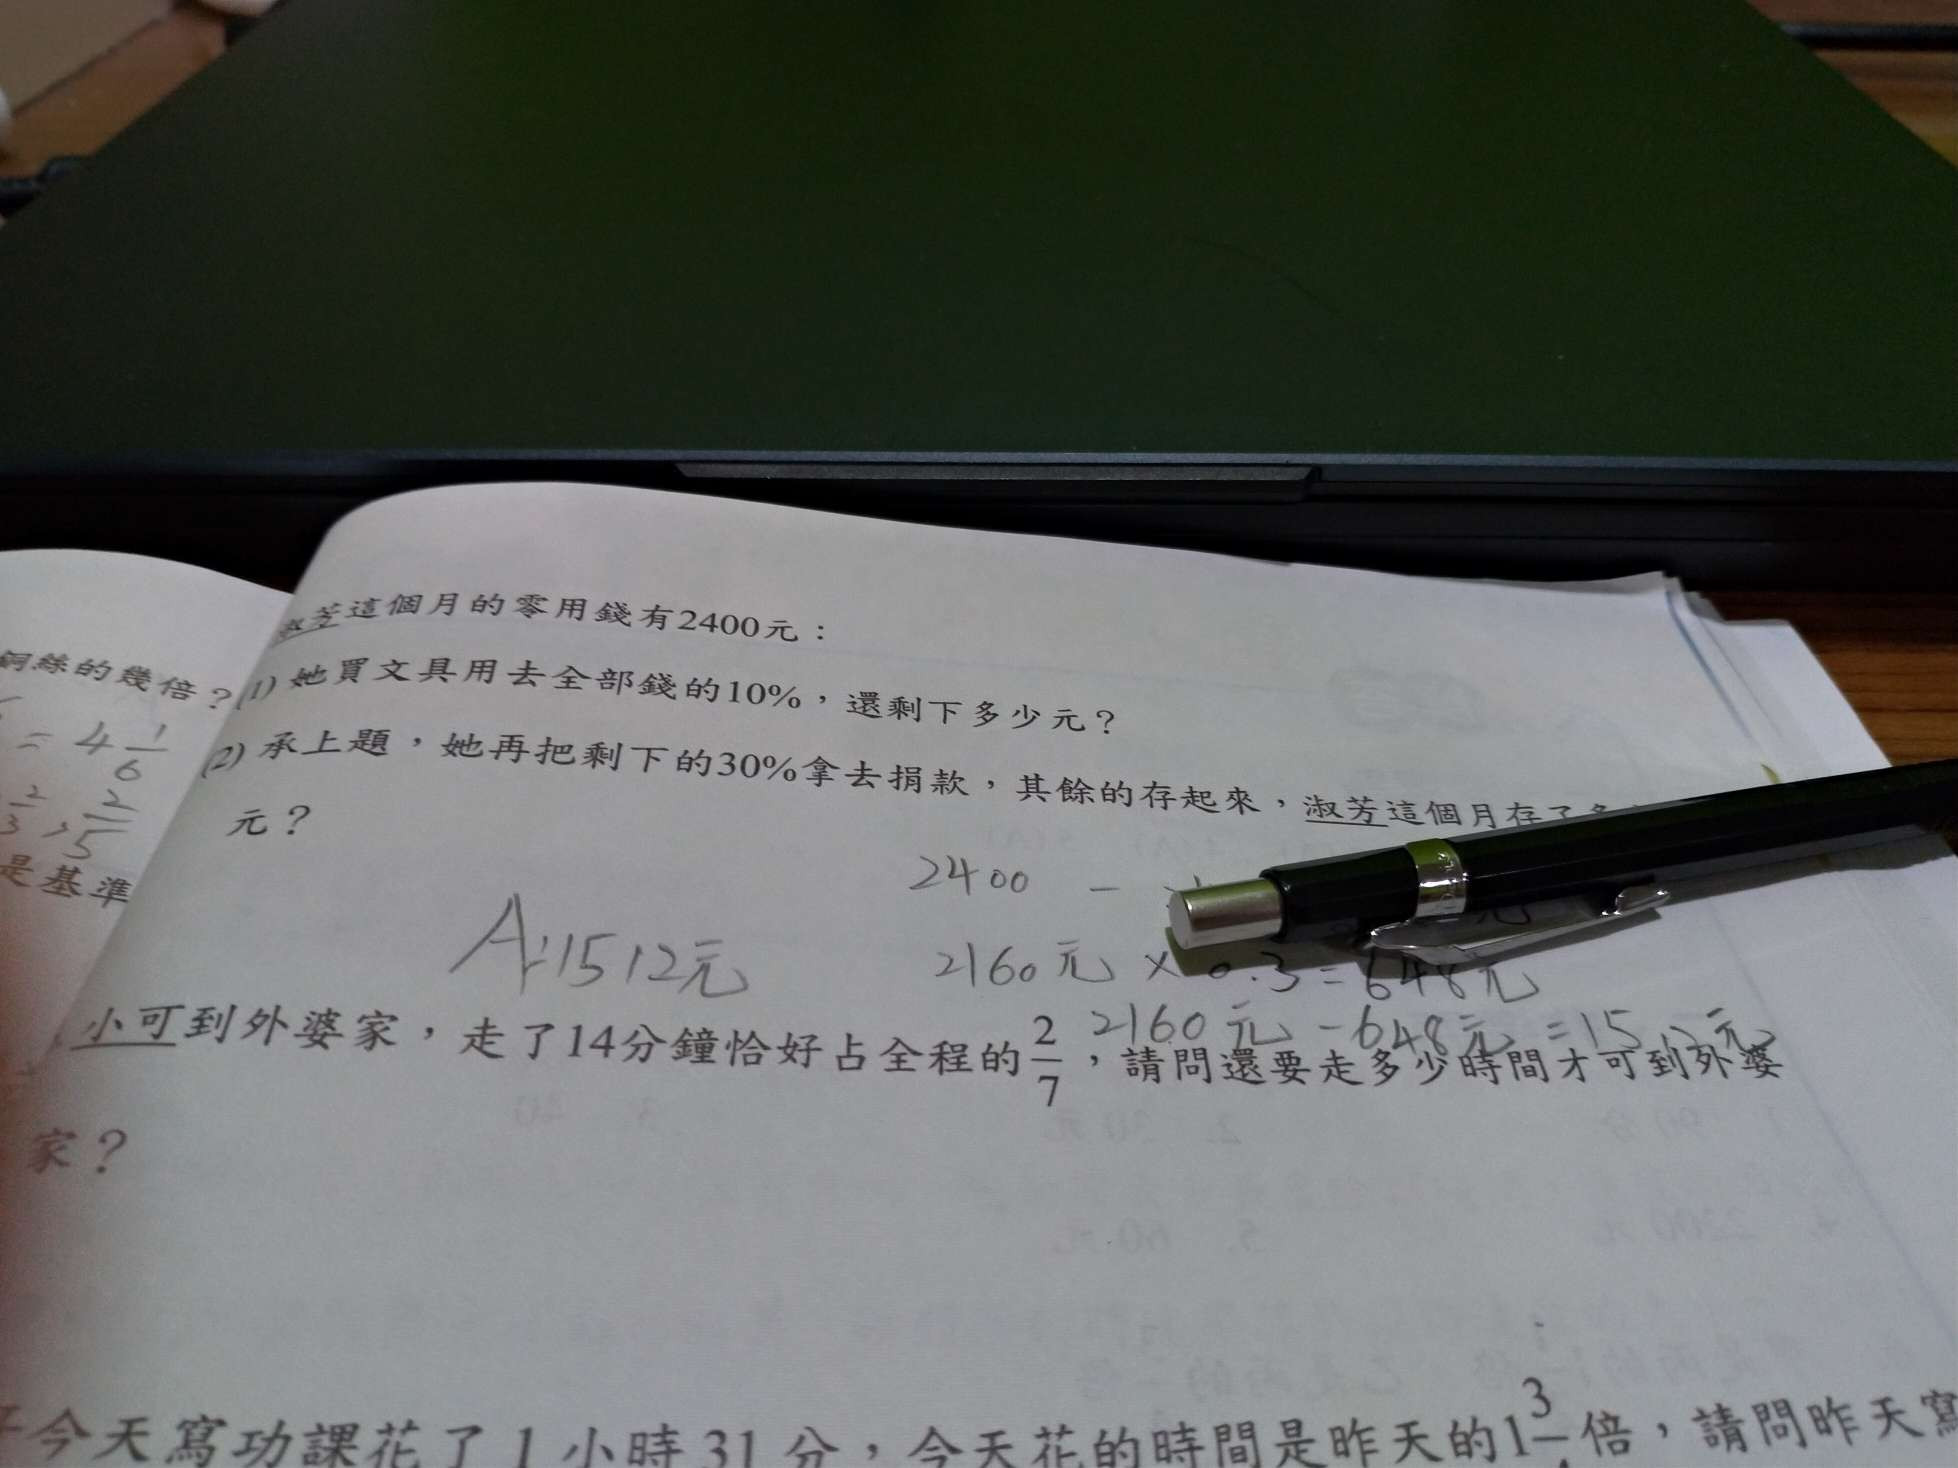 銅絲的幾倍？
= 4 1/6
2/3 , 2/5
是基準
淑芳這個月的零用錢有2400元：
(1) 她買文具用去全部錢的10%，還剩下多少元？
(2) 承上題，她再把剩下的30%拿去捐款，其餘的存起來，淑芳這個月存了
元？
2400 －
A:1512元
2160元 × 0.3 = 648元
2160元 － 648元 = 1512元
小可到外婆家，走了14分鐘恰好占全程的2/7，請問還要走多少時間才可到外婆
家？
今天寫功課花了1小時31分，今天花的時間是昨天的1 3/4倍，請問昨天寫